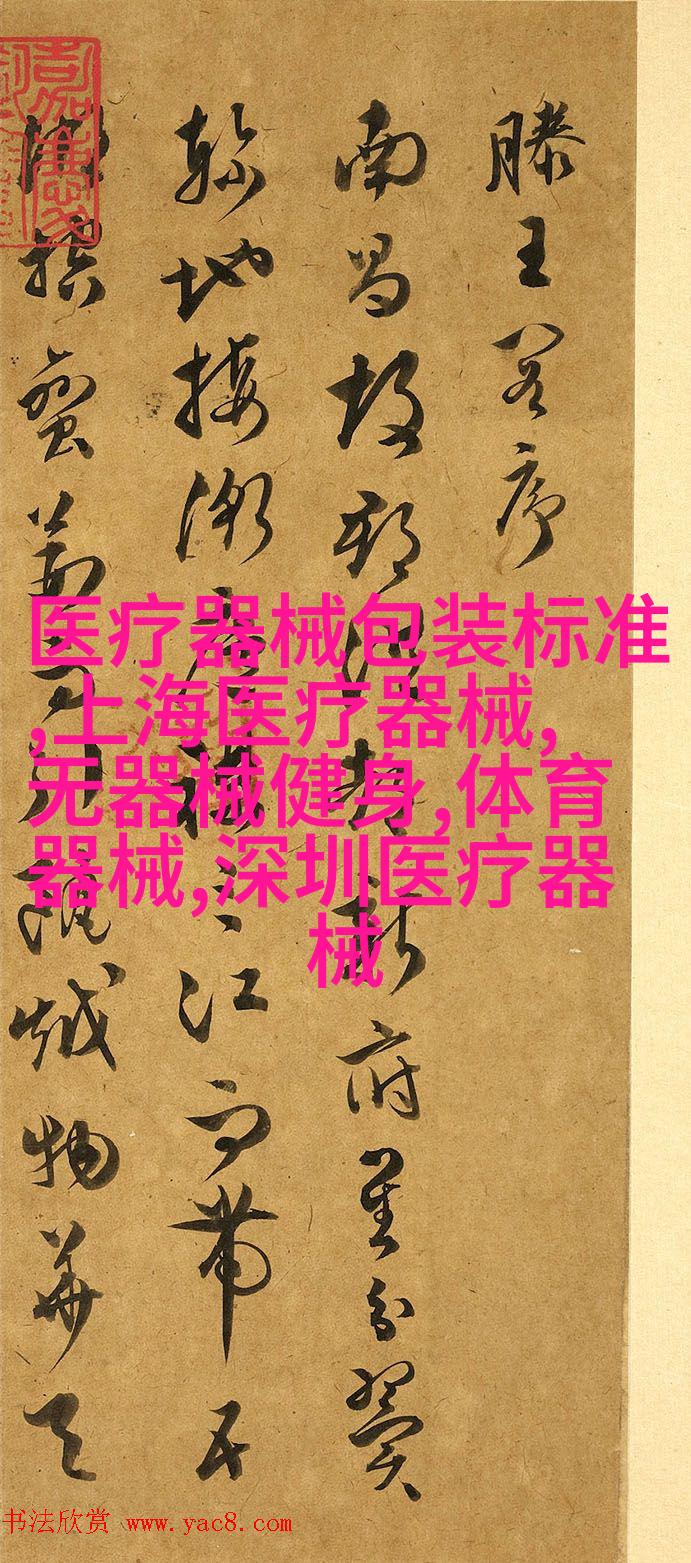 滕王閣序
南昌故郡洪都新府星分翼
軫地接衡廬襟三江而帶五
湖控蠻荊而引甌越物華天
医疗器械包装标准
,上海医疗器械,
无器械健身,体育
器械,深圳医疗器
械
书法欣赏 www.yac8.com